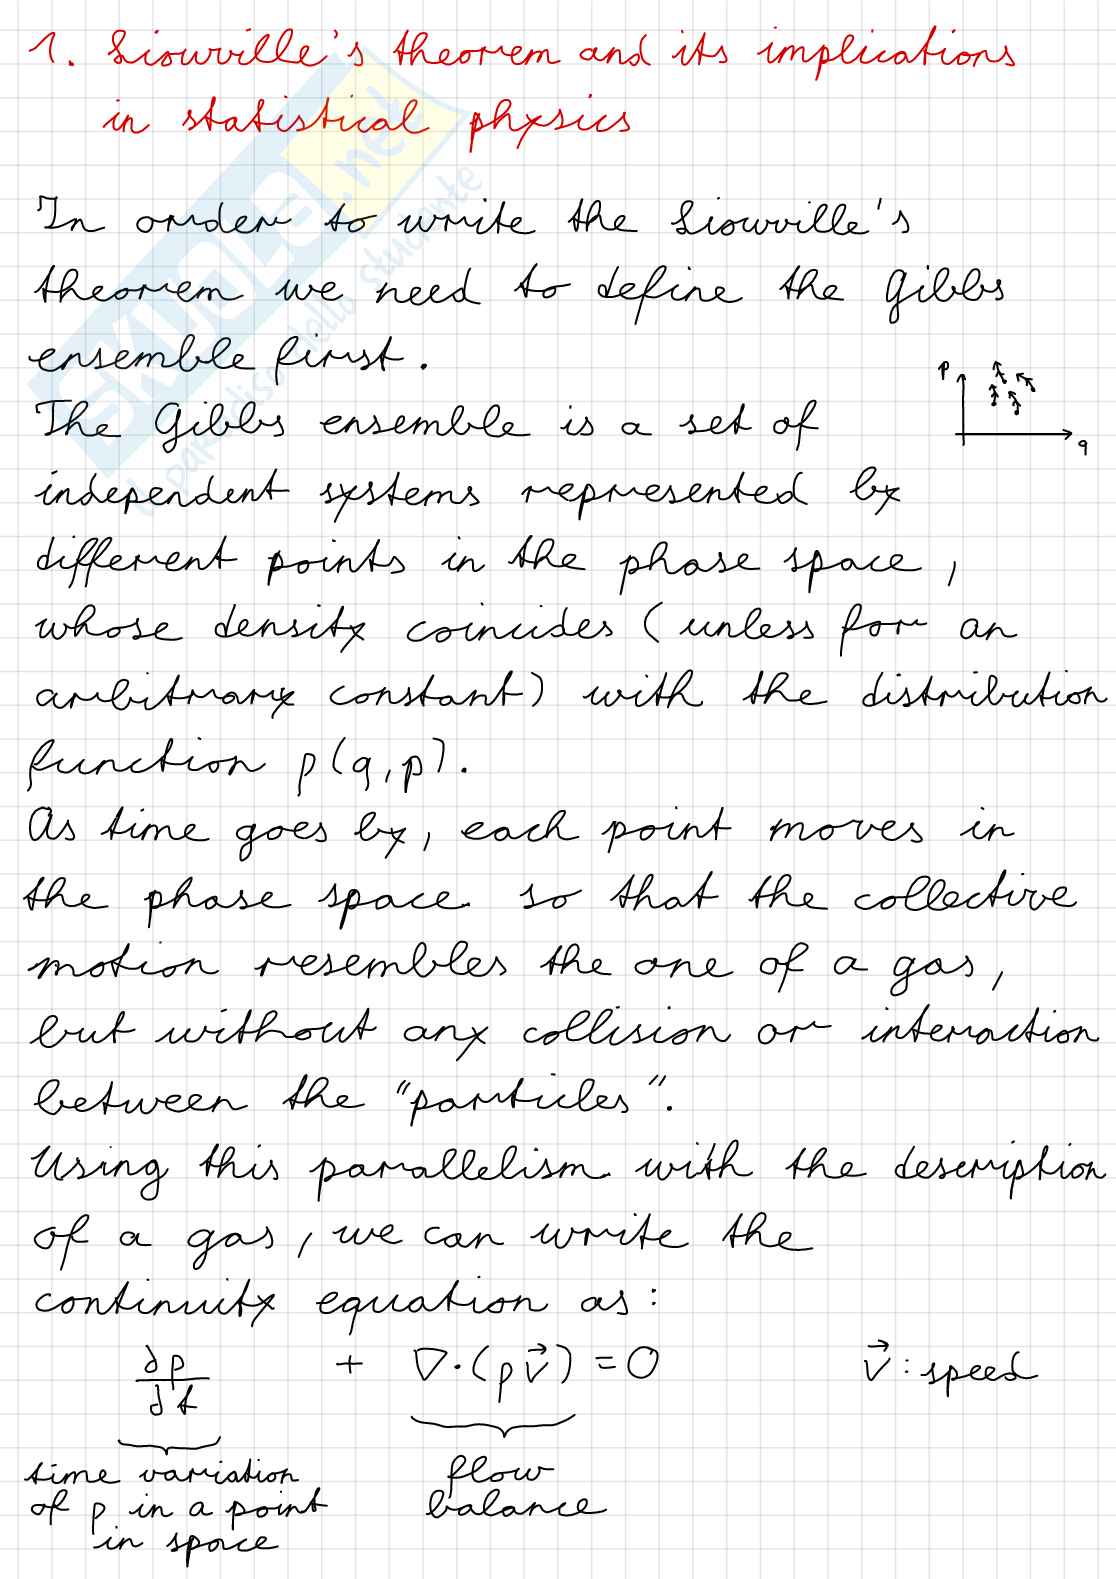 1. Liouville's theorem and its implications
in statistical physics
In order to write the Liouville's
theorem we need to define the Gibbs
ensemble first.
The Gibbs ensemble is a set of
independent systems represented by
different points in the phase space,
whose density coincides (unless for an
arbitrary constant) with the distribution
function ρ(q,p).
As time goes by, each point moves in
the phase space so that the collective
motion resembles the one of a gas,
but without any collision or interaction
between the "particles".
Using this parallelism with the description
of a gas, we can write the
continuity equation as:
∂ρ/∂t + ∇·(ρv⃗) = 0 v⃗: speed
time variation flow
of ρ in a point balance
in space
p
q
SKUOLA.net
il paradiso dello studente